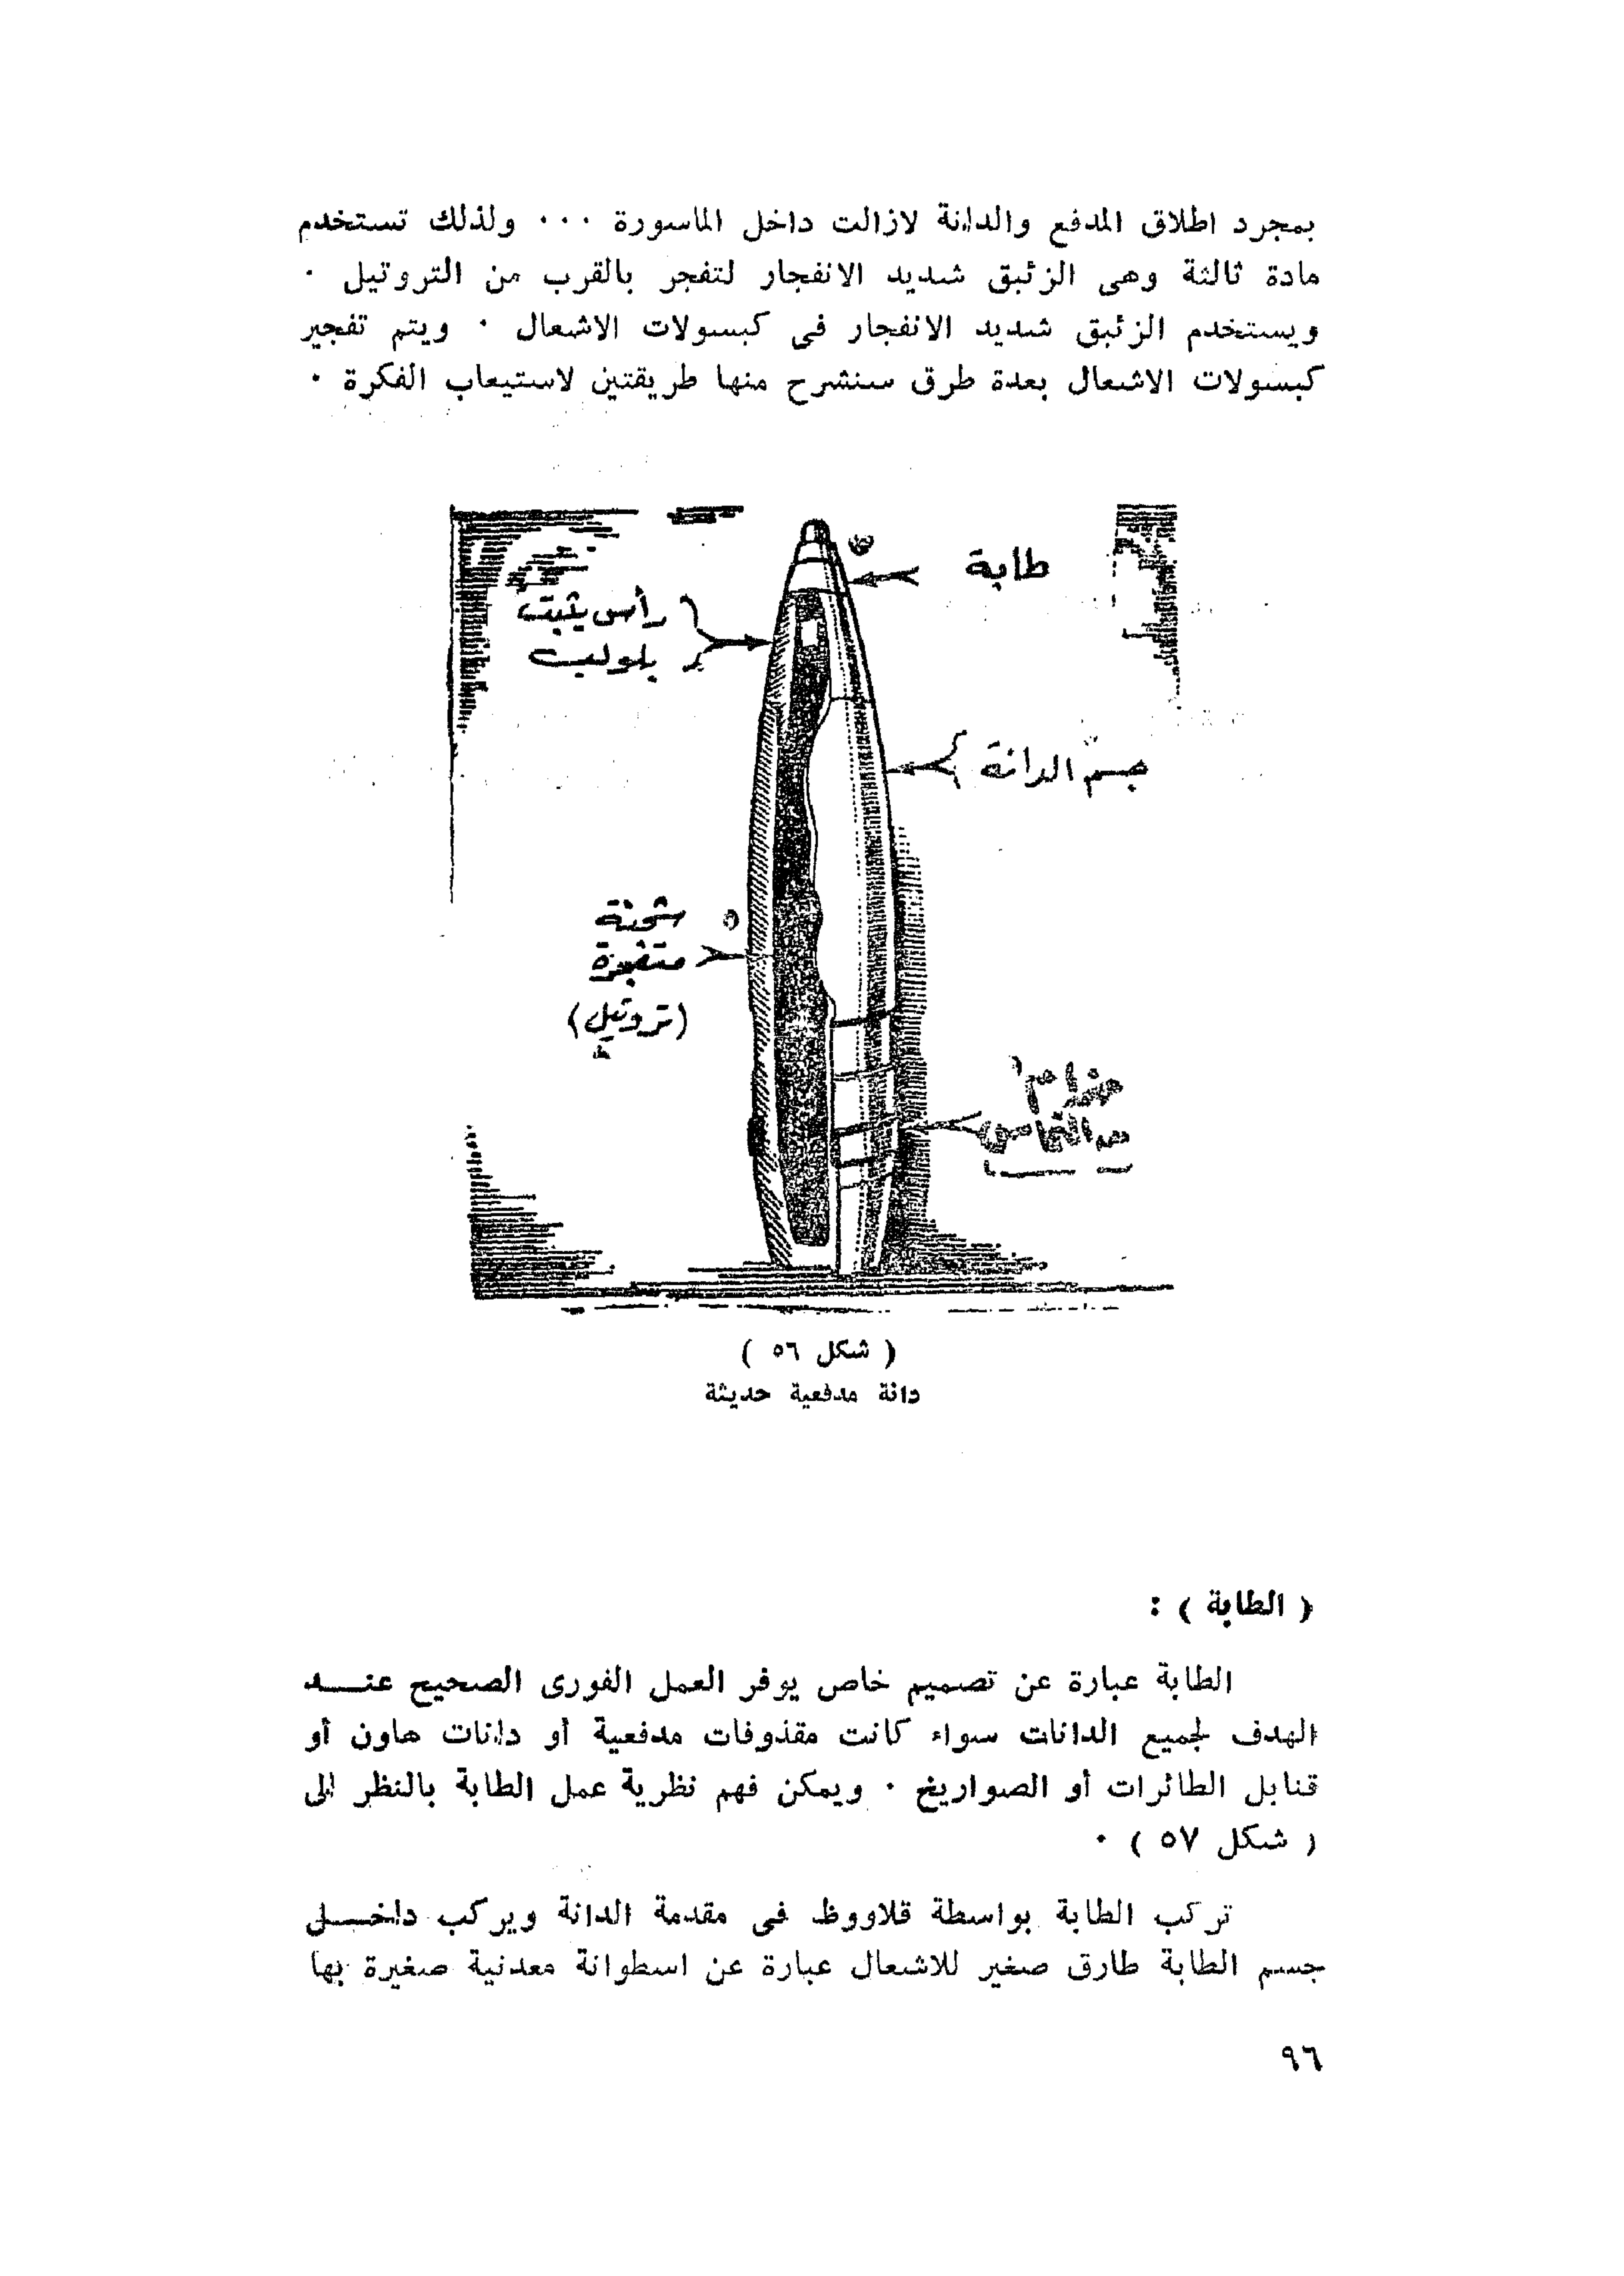 بمجرد اطلاق المدفع والدانة لازالت داخل الماسورة ٠٠٠ ولذلك تستخدم
مادة ثالثة وهى الزئبق شديد الانفجار لتفجر بالقرب من التروتيل ٠
ويستخدم الزئبق شديد الانفجار فى كبسولات الاشعال ٠ ويتم تفجير
كبسولات الاشعال بعدة طرق سنشرح منها طريقتين لاستيعاب الفكرة ٠
طابة
رأس يثبت
بلولب
جسم الدانة
شحنة
متفجرة
(تروتيل)
حزام
من النحاس
( شكل ٥٦ )
دانة مدفعية حديثة
( الطابة ) :
الطابة عبارة عن تصميم خاص يوفر العمل الفورى الصحيح عنـــد
الهدف لجميع الدانات سواء كانت مقذوفات مدفعية أو دانات هاون أو
قنابل الطائرات أو الصواريخ ٠ ويمكن فهم نظرية عمل الطابة بالنظر الى
( شكل ٥٧ ) ٠
تركب الطابة بواسطة قلاووظ فى مقدمة الدانة ويركب داخـــل
جسم الطابة طارق صغير للاشعال عبارة عن اسطوانة معدنية صغيرة بها
٩٦